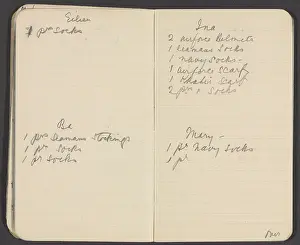 Eileen
1 pr Socks
Be
1 prs Seamans Stockings
1 pr Socks
1 pr Socks
Ina
2 airforce Helmets
1 Seamans Socks
1 Navy Socks
1 airforce Scarf
1 Khaki Scarf
2 prs Socks
Mary
1 pr Navy Socks
1 pr